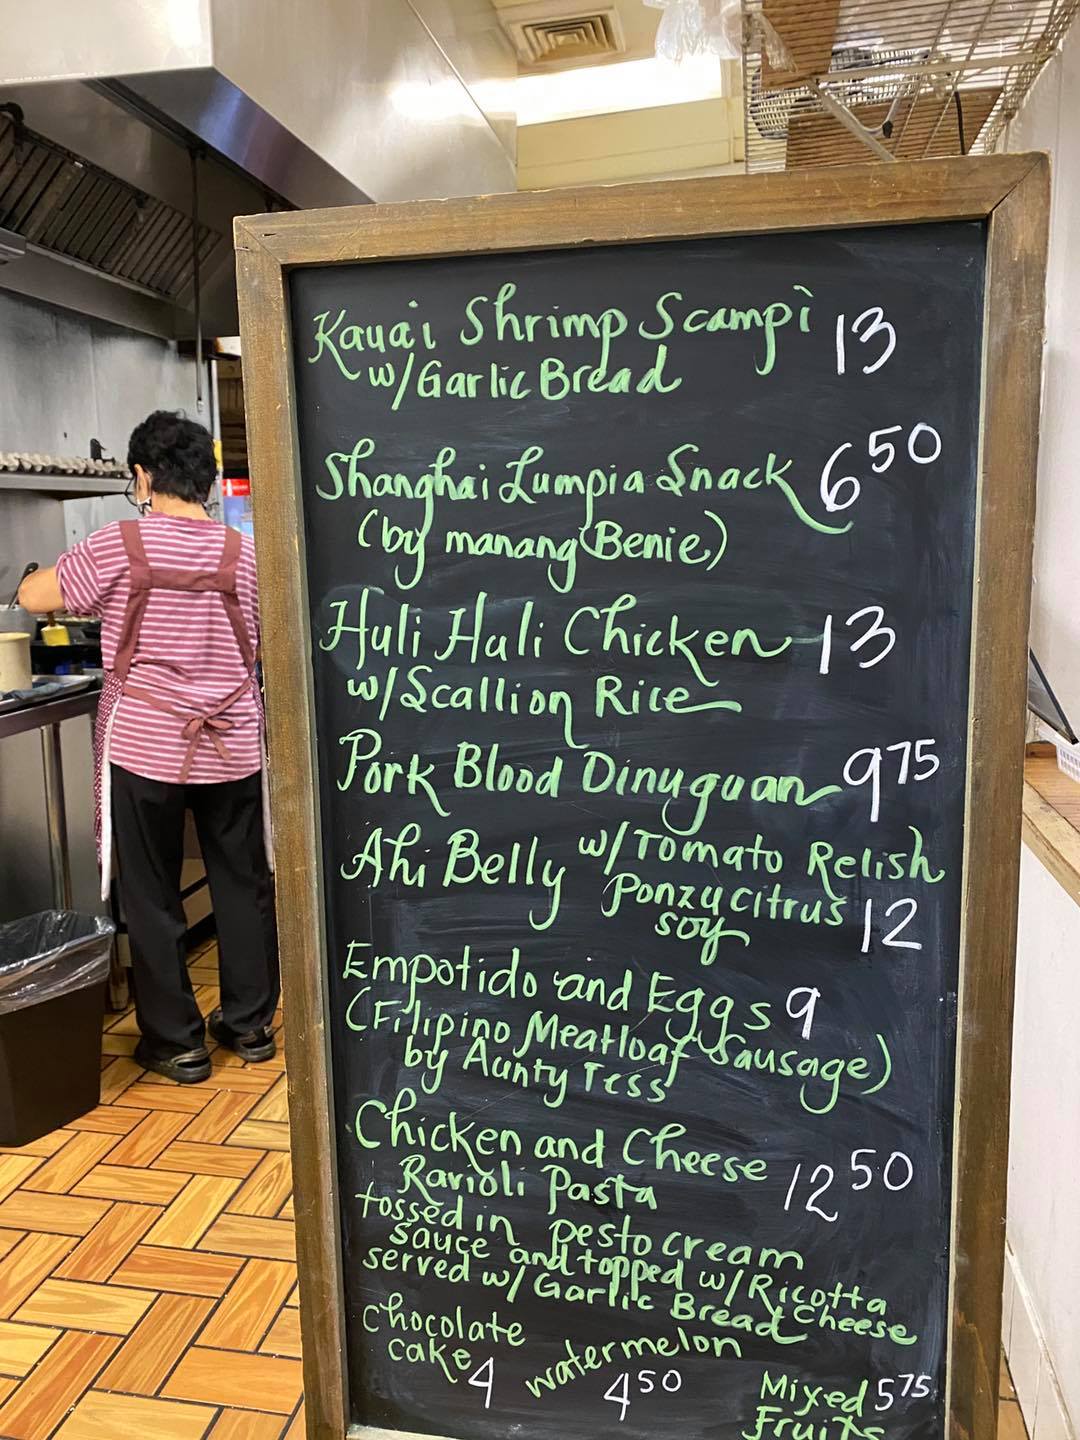 Kaua'i Shrimp Scampi 13
w/Garlic Bread
Shanghai Lumpia Snack 6 50
(by manang Benie)
Huli Huli Chicken 13
w/Scallion Rice
Pork Blood Dinuguan 9 75
Ahi Belly w/Tomato Relish
Ponzu citrus 12
soy
Empotido and Eggs 9
(Filipino Meatloaf Sausage)
by Aunty Tess
Chicken and Cheese 12 50
Ravioli Pasta
tossed in pesto cream
sauce and topped w/Ricotta Cheese
served w/Garlic Bread
Chocolate
cake 4
watermelon
4 50
Mixed 5 75
Fruits